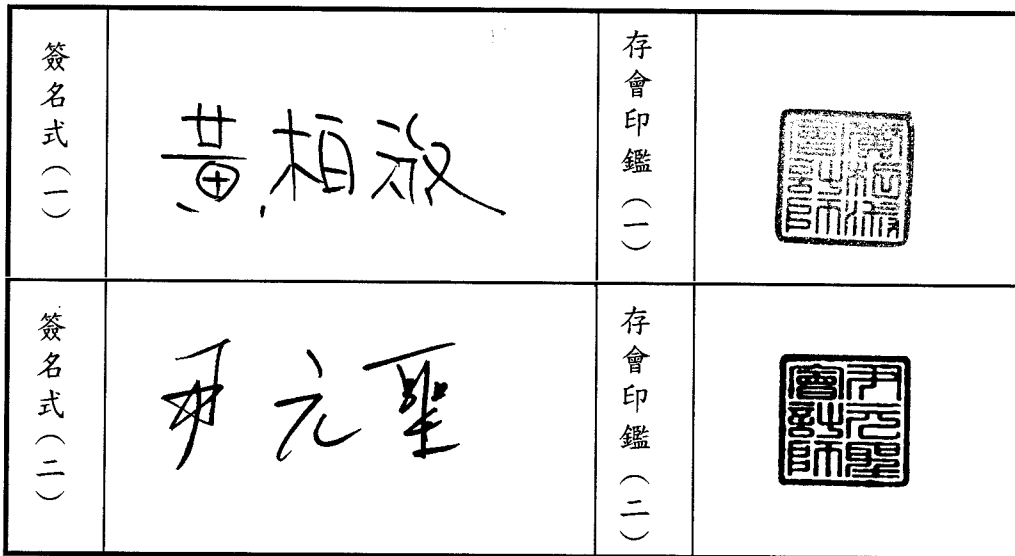 簽名式（一）
黃柏淑
存會印鑑（一）
黃柏淑會計師
簽名式（二）
尹元聖
存會印鑑（二）
尹元聖會計師